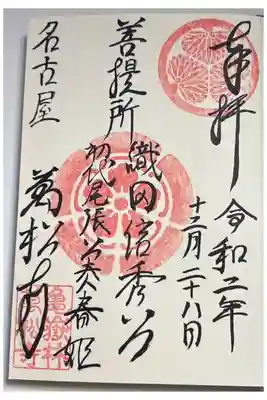 奉拝
令和二年
十二月二十八日
織田信秀公
菩提所
初代尾張公奏春姫
名古屋
萬松寺
亀嶽林
萬松寺